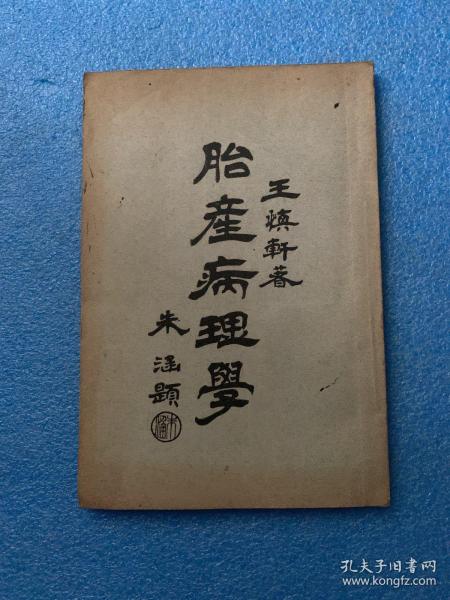 王慎軒著
胎產病理學
朱涵題
孔夫子旧书网
www.kongfz.com